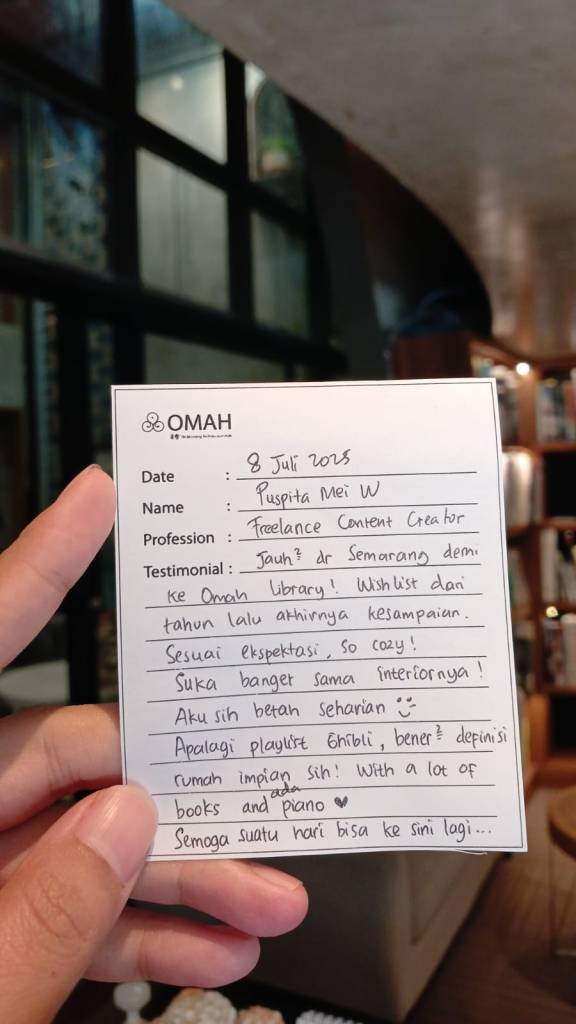 OMAH
Date : 8 Juli 2025
Name : Puspita Mei W
Profession : Freelance Content Creator
Testimonial : Jauh² dr Semarang demi
ke Omah Library! Wishlist dari
tahun lalu akhirnya kesampaian.
Sesuai ekspektasi, so cozy!
Suka banget sama interiornya!
Aku sih betah seharian
Apalagi playlist Ghibli, bener² definisi
rumah impian sih! With a lot of
books and ada piano ♥
Semoga suatu hari bisa ke sini lagi...